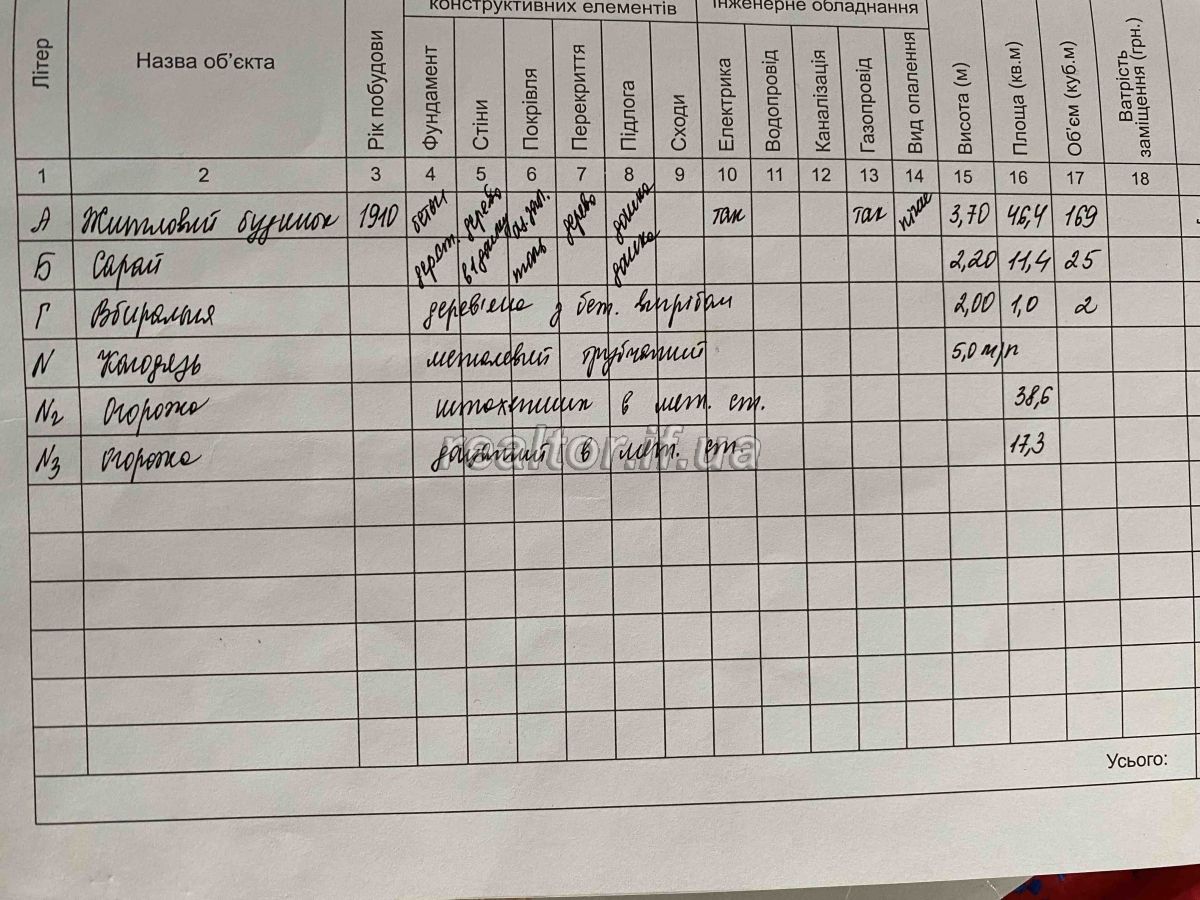 конструктивних елементів Інженерне обладнання
Літер Назва об'єкта Рік побудови Фундамент Стіни Покрівля Перекриття Підлога Сходи Електрика Водопровід Каналізація Газопровід Вид опалення Висота (м) Площа (кв.м) Об'єм (куб.м) Ватрість заміщення (грн.)
1 2 3 4 5 6 7 8 9 10 11 12 13 14 15 16 17 18
А Житловий будинок 1910 бетон дерево аз.зал. дерево дошка так так пічне 3,70 46,4 169
Б Сарай дерев. в 1 дошку толь дошка 2,20 11,4 25
Г Вбиральня дерев'яна з бет. вигрібом 2,00 1,0 2
N Колодязь металевий трубчатий 5,0 м/п
N2 Огорожа штахетник в мет. ст. 38,6
N3 Огорожа дощаний в мет. ст. 17,3
realtor.if.ua
Усього: